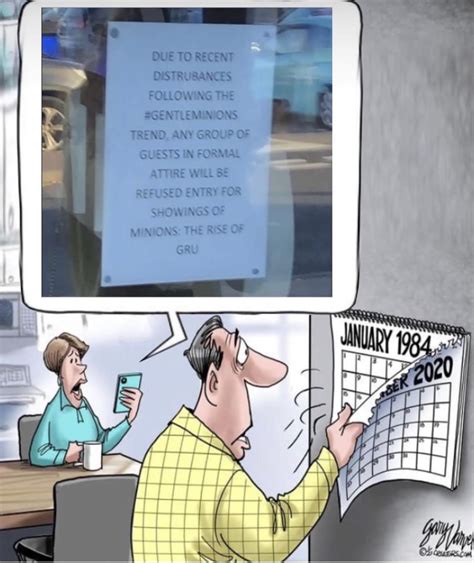 DUE TO RECENT
DISTRUBANCES
FOLLOWING THE
#GENTLEMINIONS
TREND, ANY GROUP OF
GUESTS IN FORMAL
ATTIRE WILL BE
REFUSED ENTRY FOR
SHOWINGS OF
MINIONS: THE RISE OF
GRU
JANUARY 1984
BER 2020
Gary Varvel